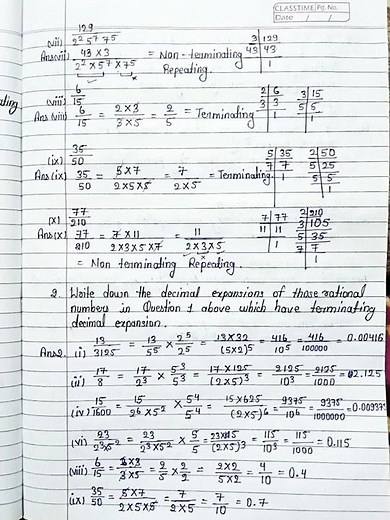 CLASSTIME Pg. No.
Date / /
(vii) 129 / 2² 5⁷ 7⁵
Ans(vii) 43 × 3 / 2² × 5⁷ × 7⁵ = Non-terminating Repeating.
3 | 129
43 | 43
1
(viii) 6/15
Ans (viii) 6/15 = 2×3 / 3×5 = 2/5 = Terminating
2 | 6
3 | 3
1
3 | 15
5 | 5
1
(ix) 35/50
Ans (ix) 35/50 = 5×7 / 2×5×5 = 7 / 2×5 = Terminating
5 | 35
7 | 7
1
2 | 50
5 | 25
5 | 5
1
(x) 77/210
Ans(x) 77/210 = 7×11 / 2×3×5×7 = 11 / 2×3×5
= Non terminating Repeating.
7 | 77
11 | 11
1
2 | 210
3 | 105
5 | 35
7 | 7
1
2. Write down the decimal expansions of those rational
numbers in Question 1 above which have terminating
decimal expansion.
Ans2. (i) 13/3125 = 13/5⁵ × 2⁵/2⁵ = 13×32 / (5×2)⁵ = 416/10⁵ = 416/100000 = 0.00416
(ii) 17/8 = 17/2³ × 5³/5³ = 17×125 / (2×5)³ = 2125/10³ = 2125/1000 = 2.125
(iv) 15/1600 = 15 / 2⁶×5² × 5⁴/5⁴ = 15×625 / (2×5)⁶ = 9375/10⁶ = 9375/1000000 = 0.009375
(vi) 23 / 2³×5² = 23 / 2³×5² × 5/5 = 23×5 / (2×5)³ = 115/10³ = 115/1000 = 0.115
(viii) 6/15 = 2×3 / 3×5 = 2/5 × 2/2 = 2×2 / 5×2 = 4/10 = 0.4
(ix) 35/50 = 5×7 / 2×5×5 = 7 / 2×5 = 7/10 = 0.7